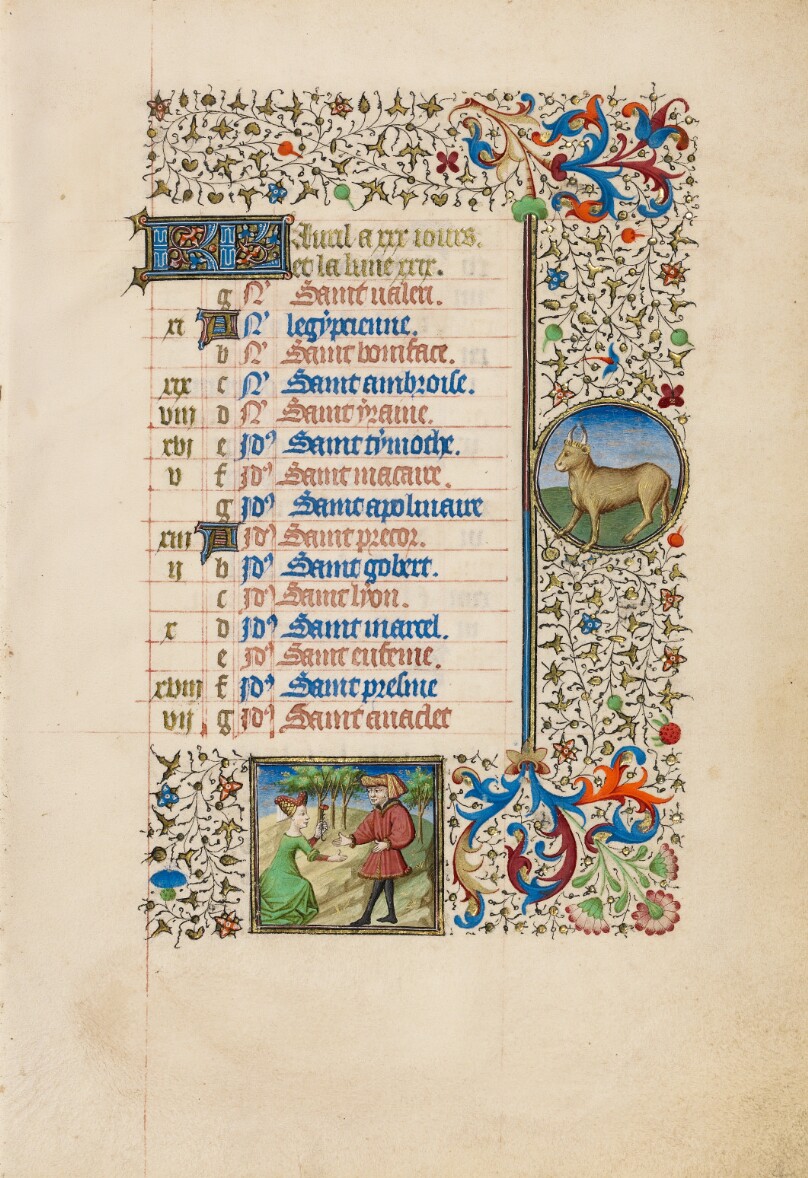 KL Auril a xxx iours.
et la lune xxix.
g N' Saint ualeri.
xi A N' legypcienne.
b N' Saint boniface.
xix c N' Saint ambroise.
viii d N' Saint yraine.
xvi e id' Saint tymothe.
v f id' Saint macaire.
g id' Saint apolinaire
xiii A id' Saint precor.
ii b id' Saint gobert.
c id' Saint lyon.
x d id' Saint marcel.
e id' Saint eufemie.
xviii f id' Saint presme
vii g id' Saint anaclet